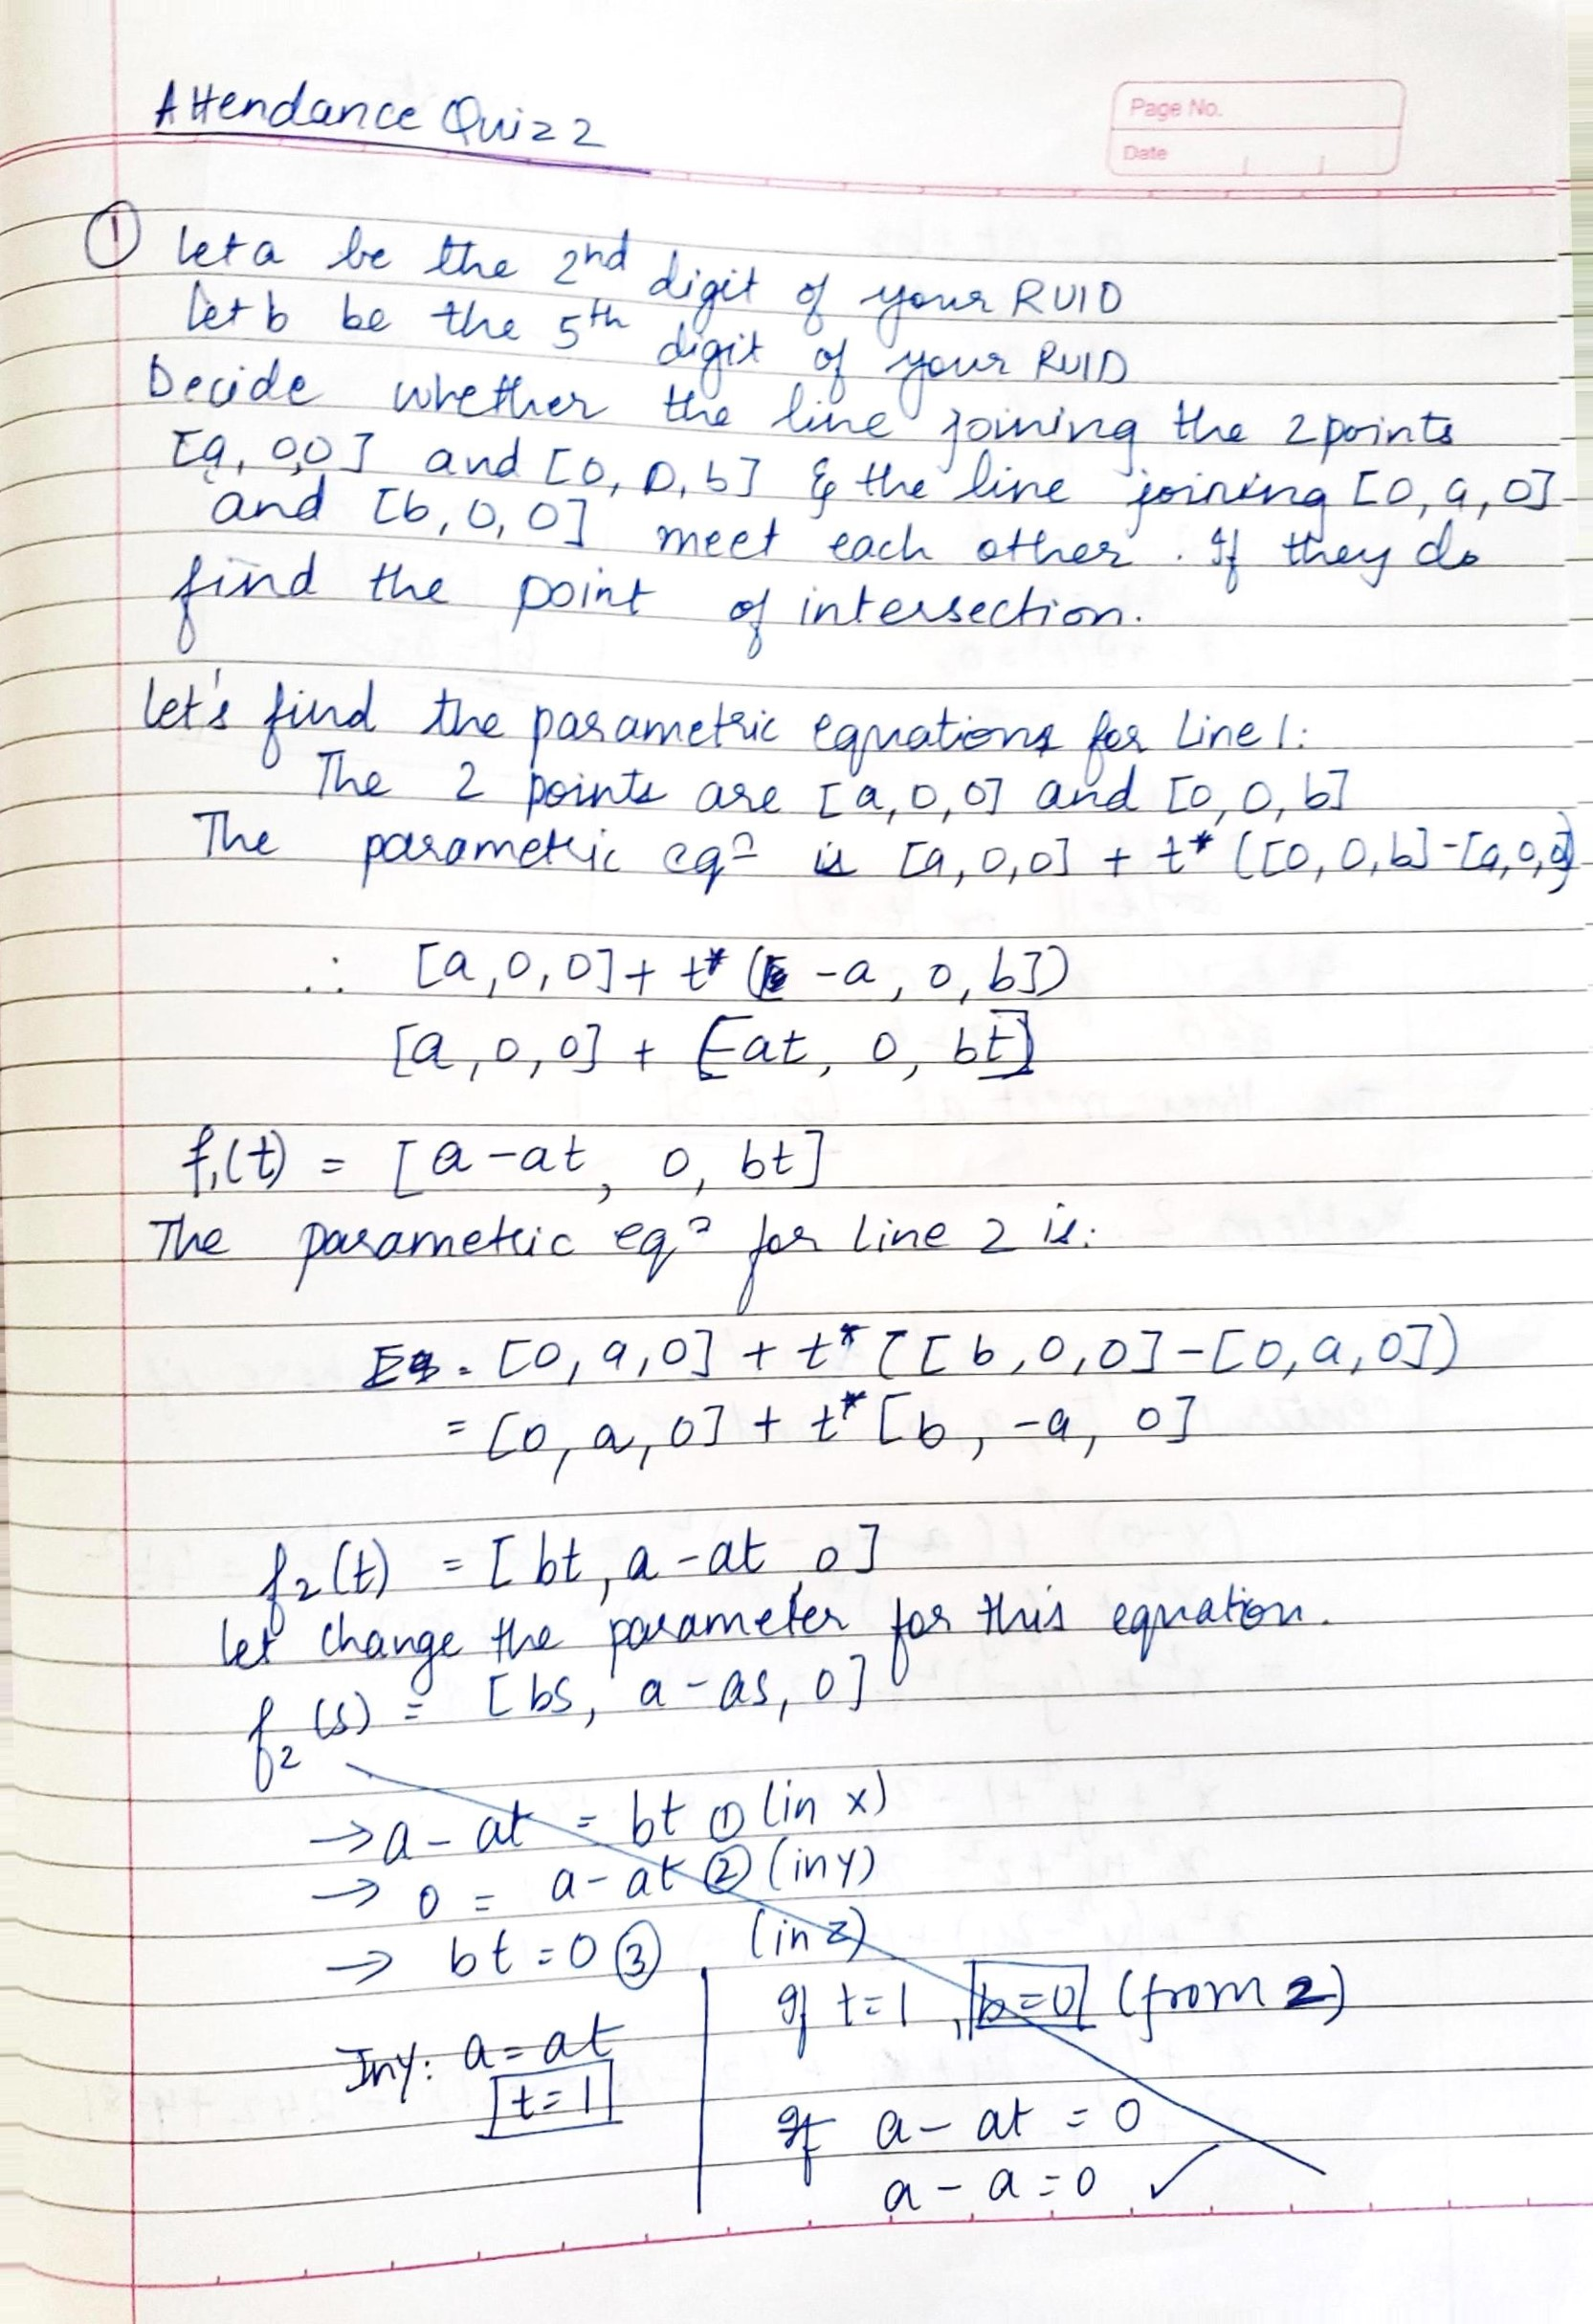 Attendance Quiz 2
Page No.
Date
① let a be the 2nd digit of your RUID
let b be the 5th digit of your RUID
Decide whether the line joining the 2 points
[a, 0,0] and [0, 0, b] & the line joining [0, a, 0]
and [b, 0, 0] meet each other. If they do
find the point of intersection.
let's find the parametric equations for Line 1:
The 2 points are [a, 0, 0] and [0, 0, b]
The parametric eqn is [a, 0, 0] + t* ([0, 0, b] - [a, 0, 0])
∴ [a, 0, 0] + t* ([-a, 0, b])
[a, 0, 0] + [-at, 0, bt]
f₁(t) = [a - at, 0, bt]
The parametric eqn for Line 2 is:
Eq. [0, a, 0] + t* ([b, 0, 0] - [0, a, 0])
= [0, a, 0] + t* [b, -a, 0]
f₂(t) = [bt, a - at, 0]
let change the parameter for this equation.
f₂(s) = [bs, a - as, 0]
→ a - at = bt ① (in x)
→ 0 = a - at ② (in y)
→ bt = 0 ③ (in z)
In y: a = at
t = 1
If t = 1, b = 0 (from 2)
If a - at = 0
a - a = 0 ✓